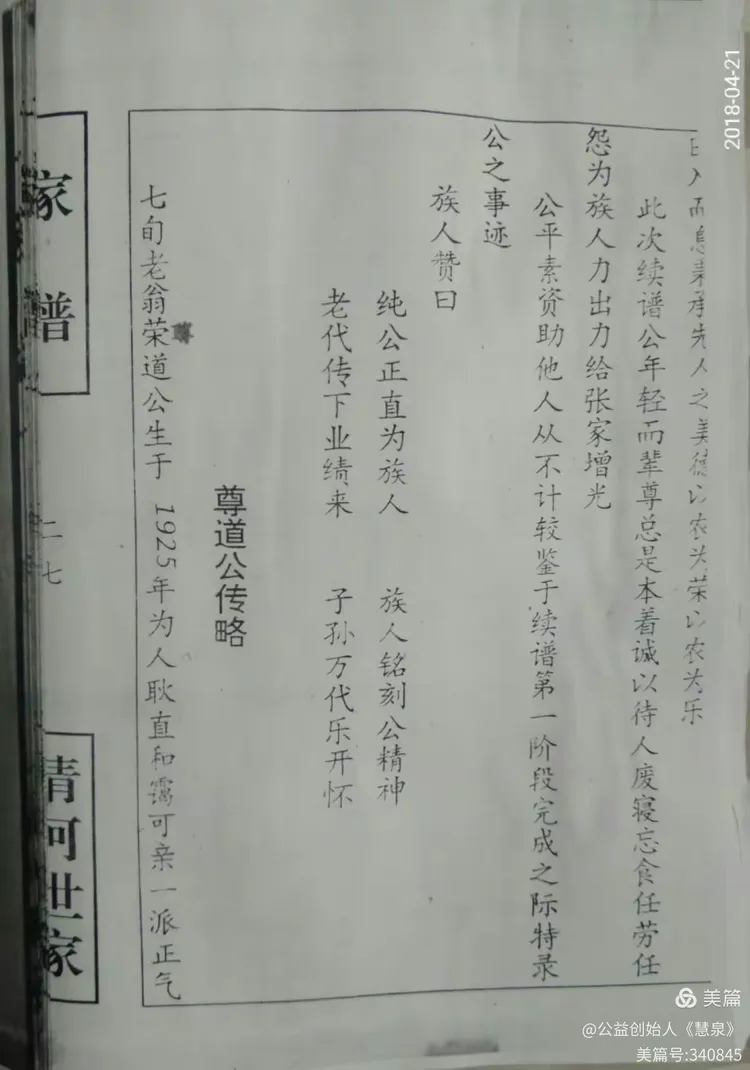 日入而息秉承先人之美德以农为荣以农为乐
此次续谱公年轻而辈尊总是本着诚以待人废寝忘食任劳任
怨为族人力出力给张家增光
公平素资助他人从不计较鉴于续谱第一阶段完成之际特录
公之事迹
族人赞曰
纯公正直为族人 族人铭刻公精神
老代传下业绩来 子孙万代乐开怀
尊道公传略
七旬老翁荣道公生于1925年为人耿直和霭可亲一派正气
尊
家谱
二七
清河世家
2018-04-21
美篇
@公益创始人《慧泉》
美篇号:340845